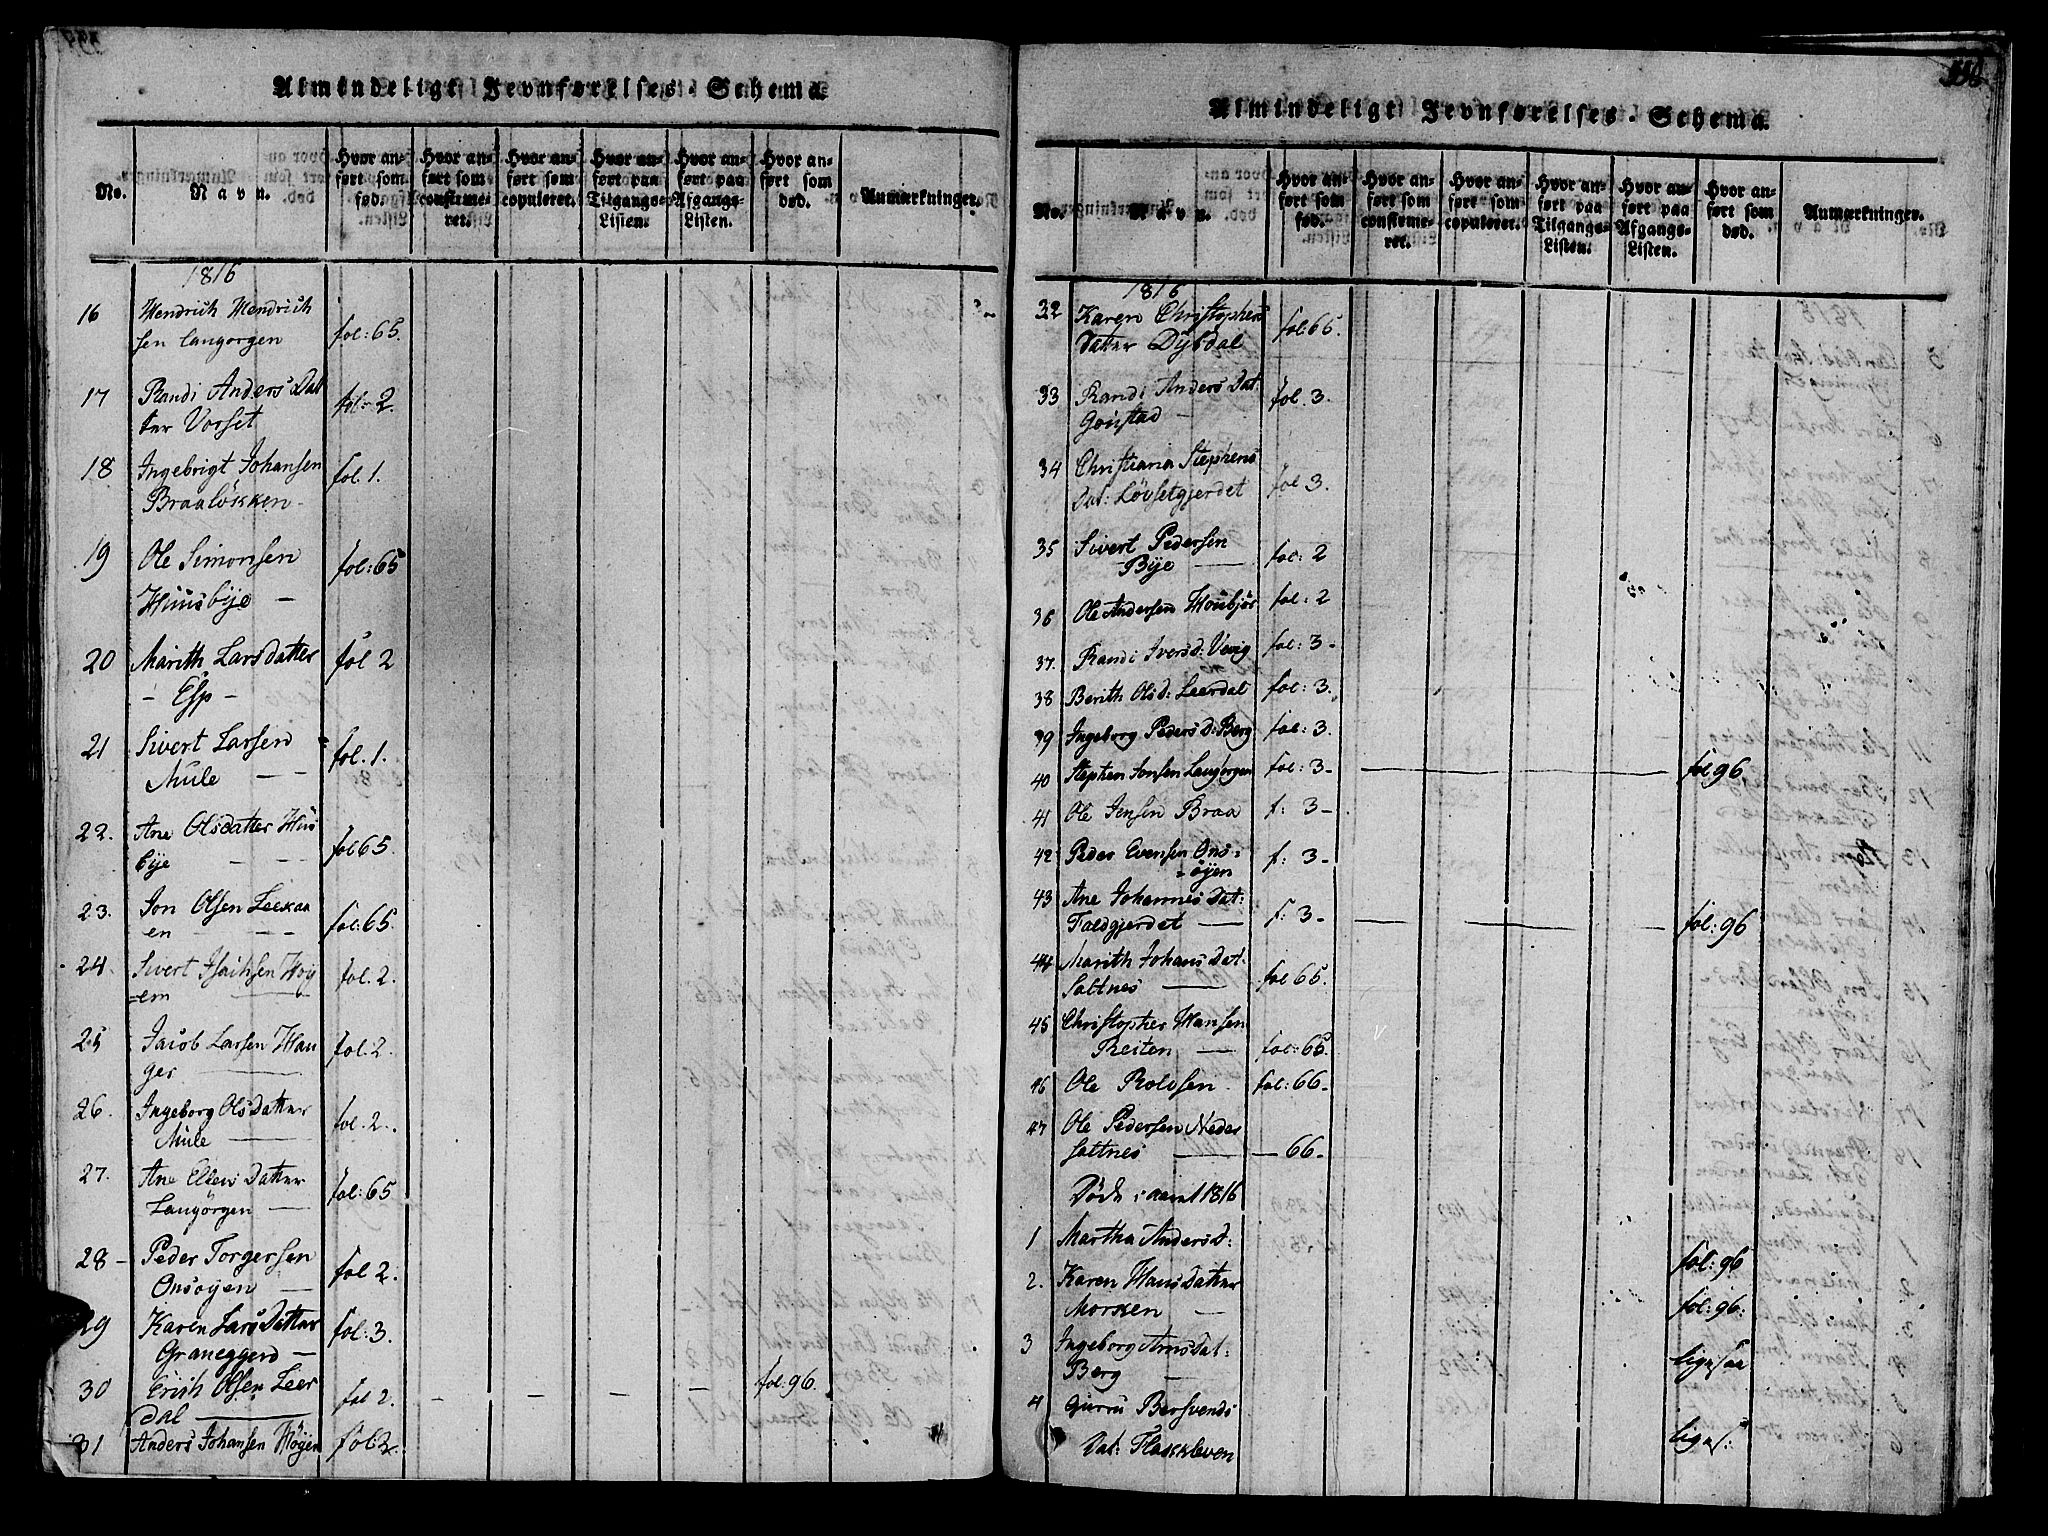 Almindeligt Jevnførelses-Schema.
No.
Navn.
Hvor anført som fød.
Hvor anført som confirmeret.
Hvor anført som copuleret.
Hvor anført paa Tilgangs-Listen.
Hvor anført paa Afgangs-Listen.
Hvor anført som død.
Anmærkninger.
1816
16 Hendrich Hendrich fol: 65.
sen Langorgen
17 Randi Anders Dat fol: 2.
ter Vorset
18 Ingebrigt Johansen fol. 1.
Braaløkken
19 Ole Simonsen fol: 65
Huusbye —
20 Marith Larsdatter fol 2
— Esp —
21 Sivert Larsen fol. 1.
Mule — —
22. Ane Olsdatter Huus fol 65.
bye — —
23. Jon Olsen Leekaa fol: 65.
en — —
24. Sivert Isachsen Høy fol. 2.
=em —
25 Jacob Larsen Hau fol: 2.
ger —
26. Ingeborg Olsdatter fol. 2.
Mule —
27. Ane Ellens Datter fol: 65
Langørgen —
28 — Peder Torgersen fol 2.
Onsøyen —
29 Karen Lars Datter fol: 3.
Graneggerd —
30 Erich Olsen Leer fol 2. — — — — fol: 96.
dal —
31 Anders Johansen Höyen fol: 2.
Almindeligt Jevnførelses-Schema.
No.
Navn.
Hvor anført som fød.
Hvor anført som confirmeret.
Hvor anført som copuleret.
Hvor anført paa Tilgangs-Listen.
Hvor anført paa Afgangs-Listen.
Hvor anført som død.
Anmærkninger.
1816
32 Karen Christophers fol: 65.
Datter Dybdal
33 Randi Anders Dat: fol. 3.
Gonstad —
34 Christiana Stephens fol 3.
Dat: Løvsetgjerdet
35 Sivert Pedersen fol: 2
Bye —
36 Ole Andersen Houbjør fol: 2
37. Randi Ivers d: fol: 3 —
38 Berith Ols d: Leerdal fol: 3.
39 Ingeborg Peders d: Berg fol: 3.
40 Stephen Jonsen Langorgen fol: 3 — fol 96.
41 Ole Jensen Braa f: 3 —
42 Peder Evensen Ons= f: 3 —
=øyen
43 Ane Johannes Dat: f: 3 — fol: 96
Foldgjerdet —
44 Marith Johans Dat. fol 65.
Saltnes —
45 Christopher Hansen
Reiten — fol: 65.
46 Ole Rolvsen fol: 66 —
47 Ole Pedersen Neder
saltnes — — 66 —
Døde i aaret 1816
1 Martha Anders d: fol: 96
2. Karen Hans Datter
Morsken — fol: 96.
3 Ingeborg Arns Dat:
Berg — ligesaa
4 Gurru Bersvends
Dat: Flaskleven liges: